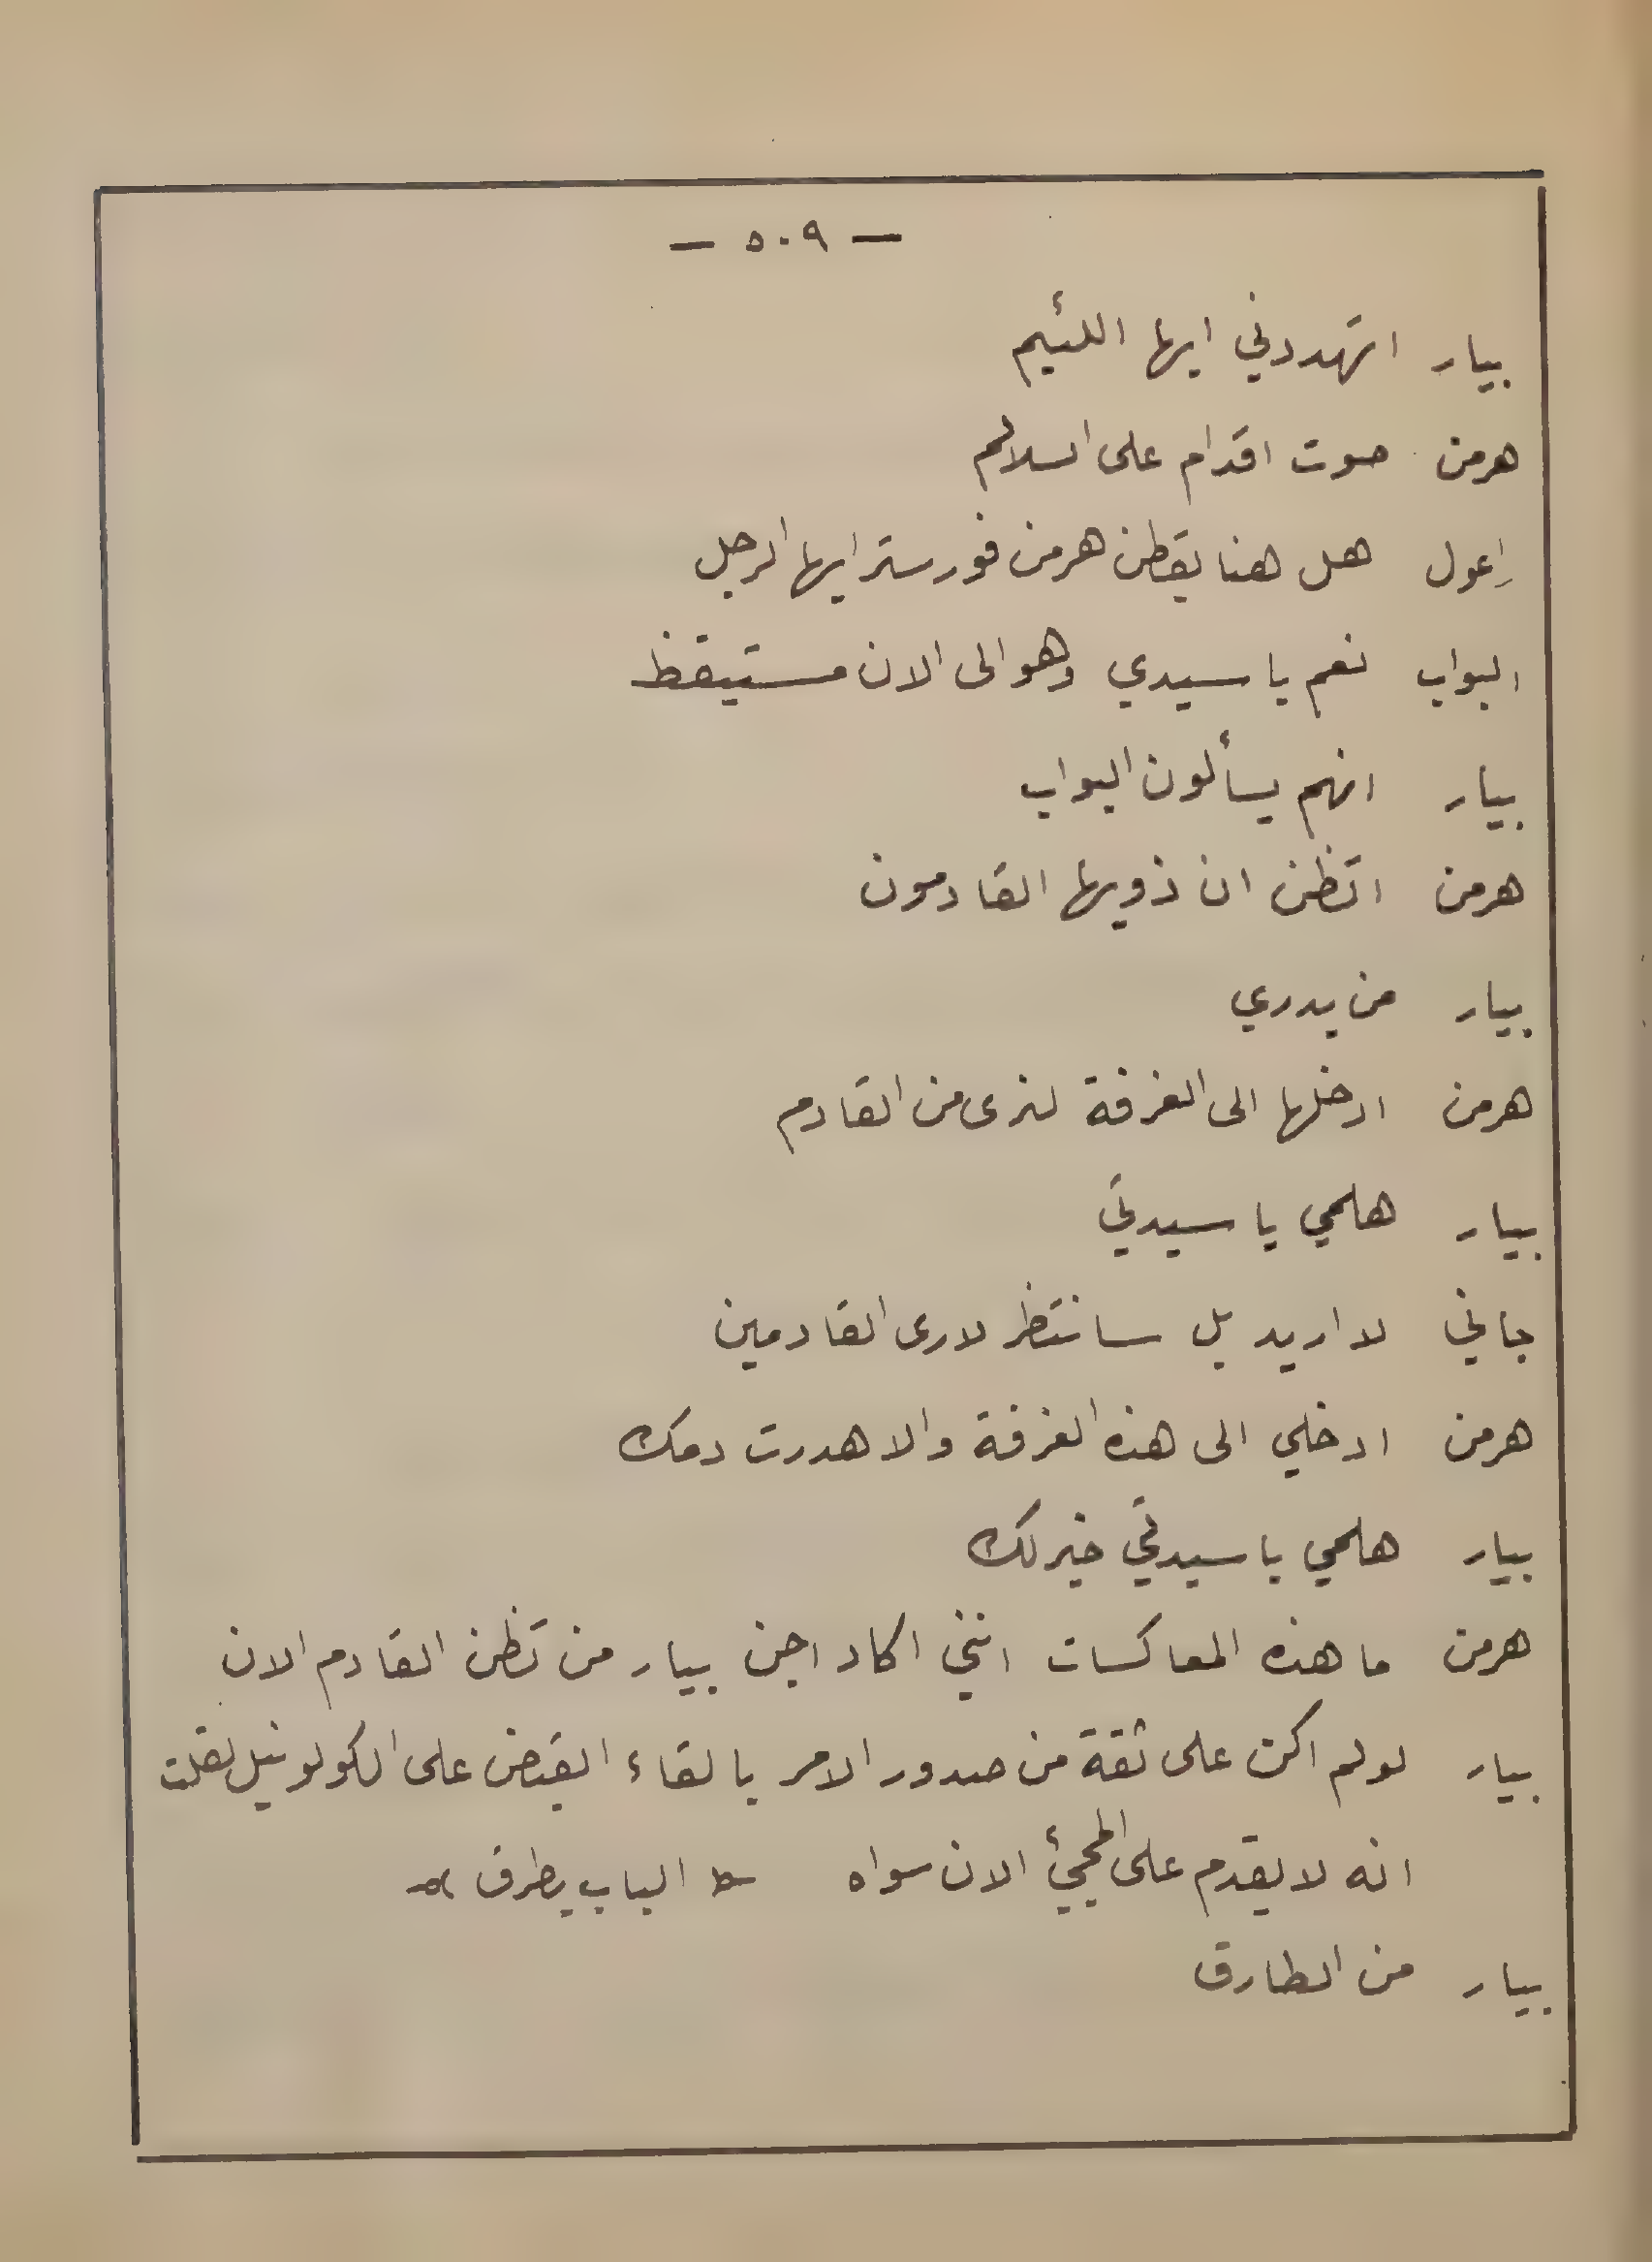 — ٥٠٩ —
بيار اتهددني ايها اللئيم
هرمن صوت اقدام على السلالم
راعول هل هنا يقطن هرمن فورستر ايها الرجل
البواب نعم يا سيدي وهو الى الان مستيقظ
بيار انهم يسألون البواب
هرمن اتظن ان ذويها القادمون
بيار من يدري
هرمن ادخلها الى الغرفة لنرى من القادم
بيار هلمي يا سيدتي
جاني لا اريد بل سانتظر لارى القادمين
هرمن ادخلي الى هذه الغرفة والا هدرت دمك
بيار هلمي يا سيدتي خير لك
هرمن ما هذه المعاكسات انني اكاد اجن بيار من تظن القادم الان
بيار لو لم اكن على ثقة من صدور الامر بالقاء القبض على الكولونيل لقلت
انه لا يقدم على المجيئ الان سواه « الباب يطرق »
بيار من الطارق